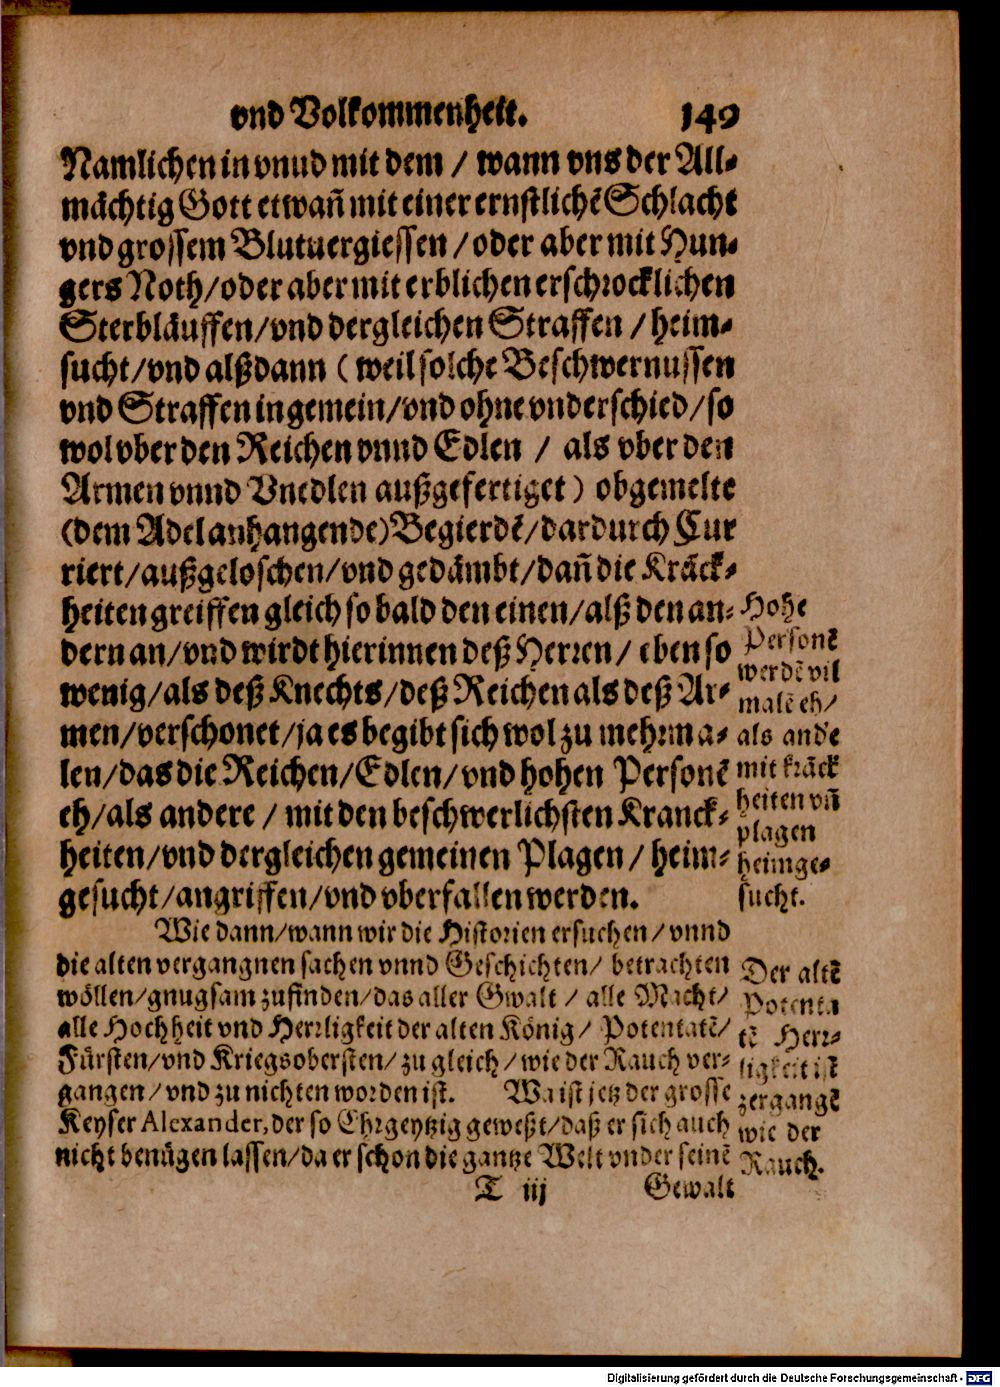 vnd Volkommenheit. 149
Namlichen in vnnd mit dem / wann vns der All-
mächtig Gott etwañ mit einer ernstlichẽ Schlacht
vnd grossem Blutuergiessen / oder aber mit Hun-
gers Noth / oder aber mit erblichen erschrocklichen
Sterbläuffen / vnd dergleichen Straffen / heim-
sucht / vnd alßdann ( weil solche Beschwernussen
vnd Straffen in gemein / vnd ohne vnderschied / so
wol vber den Reichen vnnd Edlen / als vber den
Armen vnnd Vnedlen außgefertiget ) obgemelte
(dem Adel anhangende) Begierdẽ / dardurch Cur
riert / außgeloschen / vnd gedämbt / dañ die Kräck-
heiten greiffen gleich so bald den einen / alß den an-
dern an / vnd wirdt hierinnen deß Herren / eben so
wenig / als deß Knechts / deß Reichen als deß Ar-
men / verschonet / ja es begibt sich wol zu mehrma-
len / das die Reichen / Edlen / vnd hohen Personẽ
eh / als andere / mit den beschwerlichsten Kranck-
heiten / vnd dergleichen gemeinen Plagen / heim-
gesucht / angriffen / vnd vberfallen werden.
Hohe
Personẽ
werdẽ vil
malẽ eh /
als and'e
mit kräck
heiten vñ
plagen
heimge-
sucht.
Wie dann / wann wir die Historien ersuchen / vnnd
die alten vergangnen sachen vnnd Geschichten / betrachten
wöllen / gnugsam zufinden / das aller Gwalt / alle Macht /
alle Hochheit vnd Herrligkeit der alten König / Potentatẽ /
Fürsten / vnd Kriegsobersten / zu gleich / wie der Rauch ver-
gangen / vnd zu nichten worden ist. Wa ist jetz der grosse
Keyser Alexander, der so Ehrgeytzig geweßt / daß er sich auch
nicht benügen lassen / da er schon die gantze Welt vnder seinẽ
Der altẽ
Potenta
tẽ Herr-
ligkeit ist
zergangẽ
wie der
Rauch.
T iij Gewalt
Digitalisierung gefördert durch die Deutsche Forschungsgemeinschaft - DFG